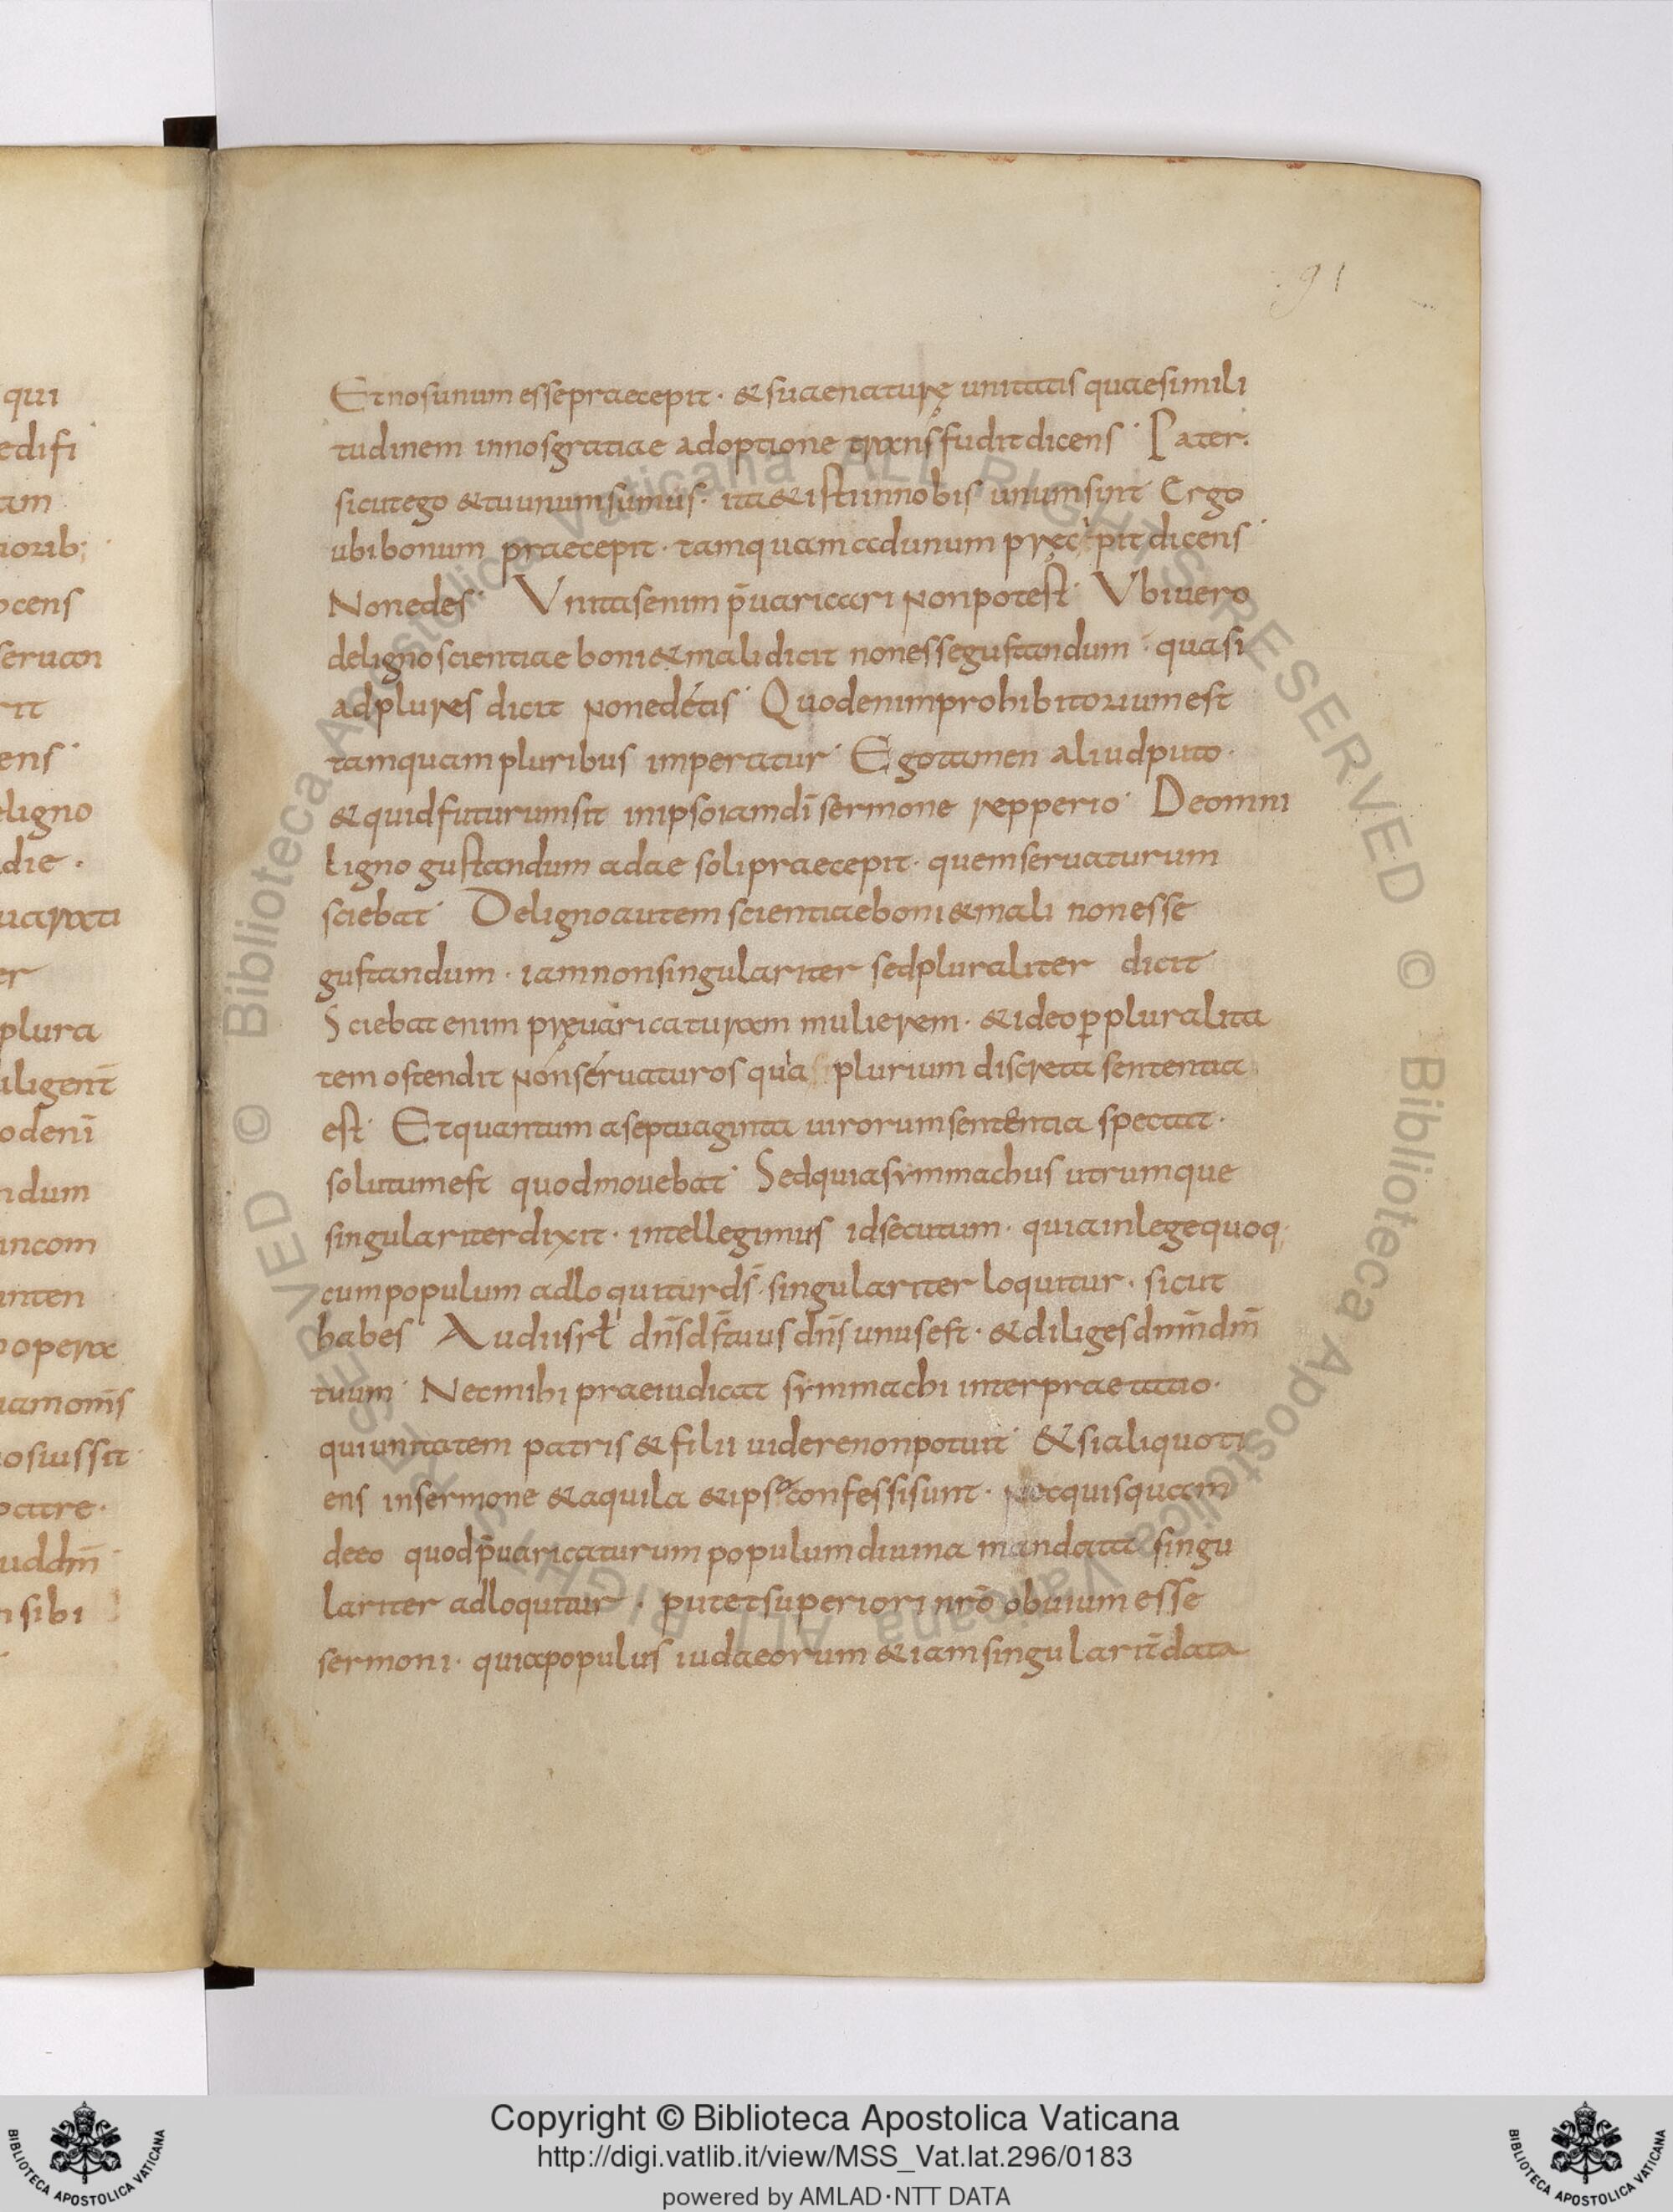 qui
edifi
am
iorib;
ocens
seruan
rit
ens
eligno
die .
uarica
er
plura
iligent̄
odenī
ndum
incom
inten
opera
iamonīs
osiussit
patre·
uddm̄
sibi
91
Etnosunum essepraecepit· &suaenaturę unitatis quaesimili
tudinem innosgratiae adoptione transfudit dicens· Pater.
sicutego &tuunumsumus· ita&istiinnobis unumsint Ergo
ubibonum praecepit· tamquamadunum pręcipit dicens·
Nonedes· Vnitasenim p̄uaricari nonpotest· Vbiuero
delignoscientiae boni&malidicit nonessegustandum· quasi
adplures dicit nonedétis· Quodenimprohibitoriumest
tamquampluribus imperatur· Egotamen aliudputo·
&quidfuturumsit inipsoiamdī sermone repperio· Deomni
ligno gustandum adae solipraecepit· quemseruaturum
sciebat· Delignoautemscientiaeboni&mali nonesse
gustandum· iamnonsingulariter sedpluraliter dicit·
Sciebatenim pręuaricaturam mulierem· &ideoꝑpluralita
tem ostendit nonséruaturos quia plurium discreta sententia
est· Etquantum aseptuaginta uirorumsententia spectat·
solutumest quodmouebat· Sedquiasymmachus utrumque
singulariterdixit· intellegimus idsecutum· quiainlegequoq;
cumpopulum adloquiturds̄· singulariter loquitur· sicut
habes Audiisrł dn̄sds̄tuus dn̄s unusest· &diligesdnm̄dm̄
tuum· Necmihi praeiudicat symmachi interpraetatio·
quiunitatem patris&filii uiderenonpotuit· &sialiquoti
ens insermone &aquila &ipse confessisunt· Necquisquam
deeo quodp̄uaricaturumpopulumdiuina mandata singu
lariter adloquitur· putetsuperiori nr̄o obuium esse
sermoni· quiapopulus iudaeorum &iamsingularit̄data
© Biblioteca Apostolica Vaticana ALL RIGHTS RESERVED © Biblioteca Apostolica Vaticana ALL RIGHTS RESERVED
Copyright © Biblioteca Apostolica Vaticana
http://digi.vatlib.it/view/MSS_Vat.lat.296/0183
powered by AMLAD·NTT DATA
BIBLIOTECA APOSTOLICA VATICANA
BIBLIOTECA APOSTOLICA VATICANA